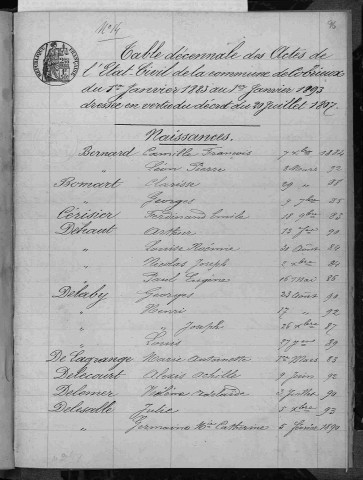 N° 14
96
Table décennale des Actes de
l'Etat-Civil de la commune de Cobrieux
du 1er Janvier 1883 au 1er Janvier 1893
dressée en vertu du décret du 20 Juillet 1807.
Naissances.
Bernard Camille François 7 Xbre 1884
" Léon Pierre 8 Mars 92
Bomart Clarisse 29 " 88
" Georges 9 7bre
Cérisier Ferdinand Emile 18 9bre 92
Dehaut Arthur 12 90
" Louise Noémie 30 Août 84
" Nicolas Joseph 2 Xbre 84
" Paul Eugène 16 Mai 86
Delaby Georges 23 Août 90
" Henri 17 " 92
" " Joseph 26 Xbre 87
" Louis 27 89
De Lagrange Marie Antoinette Mars 83
Delecourt Alexis Achille 9 Juin 92
Delemer 3 Juillet 90
Delesalle Julie 5 Xbre 93
" Germaine Mie Catherine 5 Février 1890